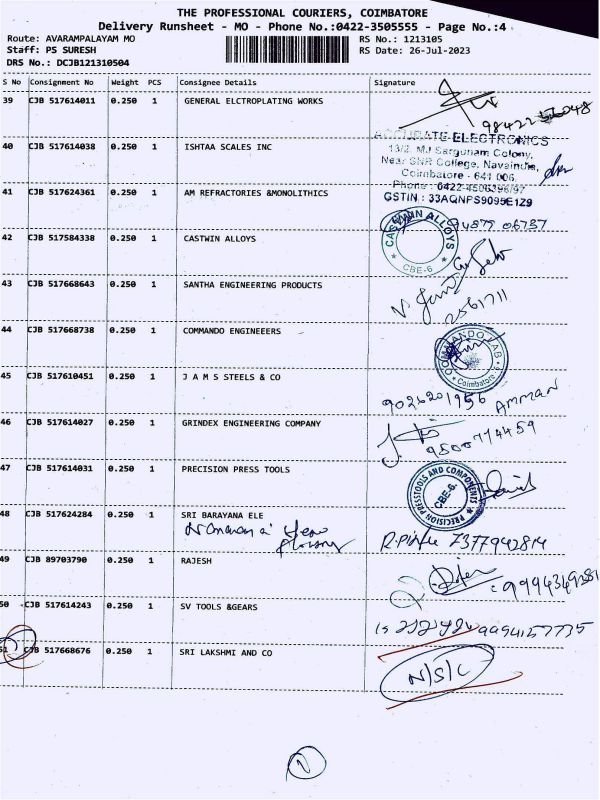 THE PROFESSIONAL COURIERS, COIMBATORE
Delivery Runsheet - MO - Phone No.:0422-3505555 - Page No.:4
Route: AVARAMPALAYAM MO
RS No.: 1213105
Staff: PS SURESH
RS Date: 26-Jul-2023
DRS No.: DCJB121310504
S No Consignment No Weight PCS Consignee Details Signature
39 CJB 517614011 0.250 1 GENERAL ELCTROPLATING WORKS
40 CJB 517614038 0.250 1 ISHTAA SCALES INC
ACCURATE ELECTRONICS
13/2, MJ Sargunam Colony,
Near SNR College, Navaindia,
Coimbatore - 641 006.
Phone : 0422-4506396/97
GSTIN : 33AQNPS9095E1Z9
41 CJB 517624361 0.250 1 AM REFRACTORIES &MONOLITHICS
42 CJB 517584338 0.250 1 CASTWIN ALLOYS
CASTWIN ALLOYS
CBE-6
43 CJB 517668643 0.250 1 SANTHA ENGINEERING PRODUCTS
2561711
44 CJB 517668738 0.250 1 COMMANDO ENGINEEERS
COMMANDO
Coimbatore
45 CJB 517610451 0.250 1 J A M S STEELS & CO
9026201956 AMMAN
46 CJB 517614027 0.250 1 GRINDEX ENGINEERING COMPANY
9500774459
47 CJB 517614031 0.250 1 PRECISION PRESS TOOLS
PRECISION PRESSTOOLS AND COMPONENTS
CBE-6.
48 CJB 517624284 0.250 1 SRI BARAYANA ELE
7377942814
49 CJB 89703790 0.250 1 RAJESH
50 CJB 517614243 0.250 1 SV TOOLS &GEARS
9994157735
51 CJB 517668676 0.250 1 SRI LAKSHMI AND CO
N/S/C